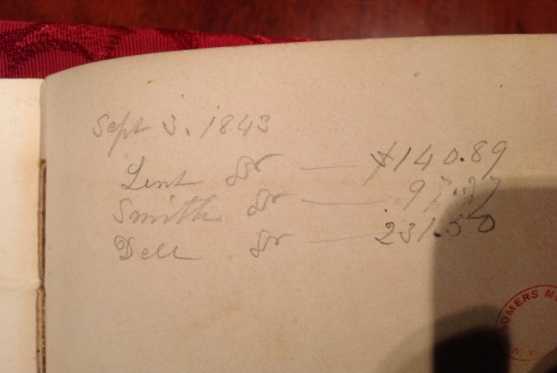 Sept 3. 1843
Lent Dr — $140.89
Smith Dr — 97.37
Dell Dr — 231.50
OMERS M